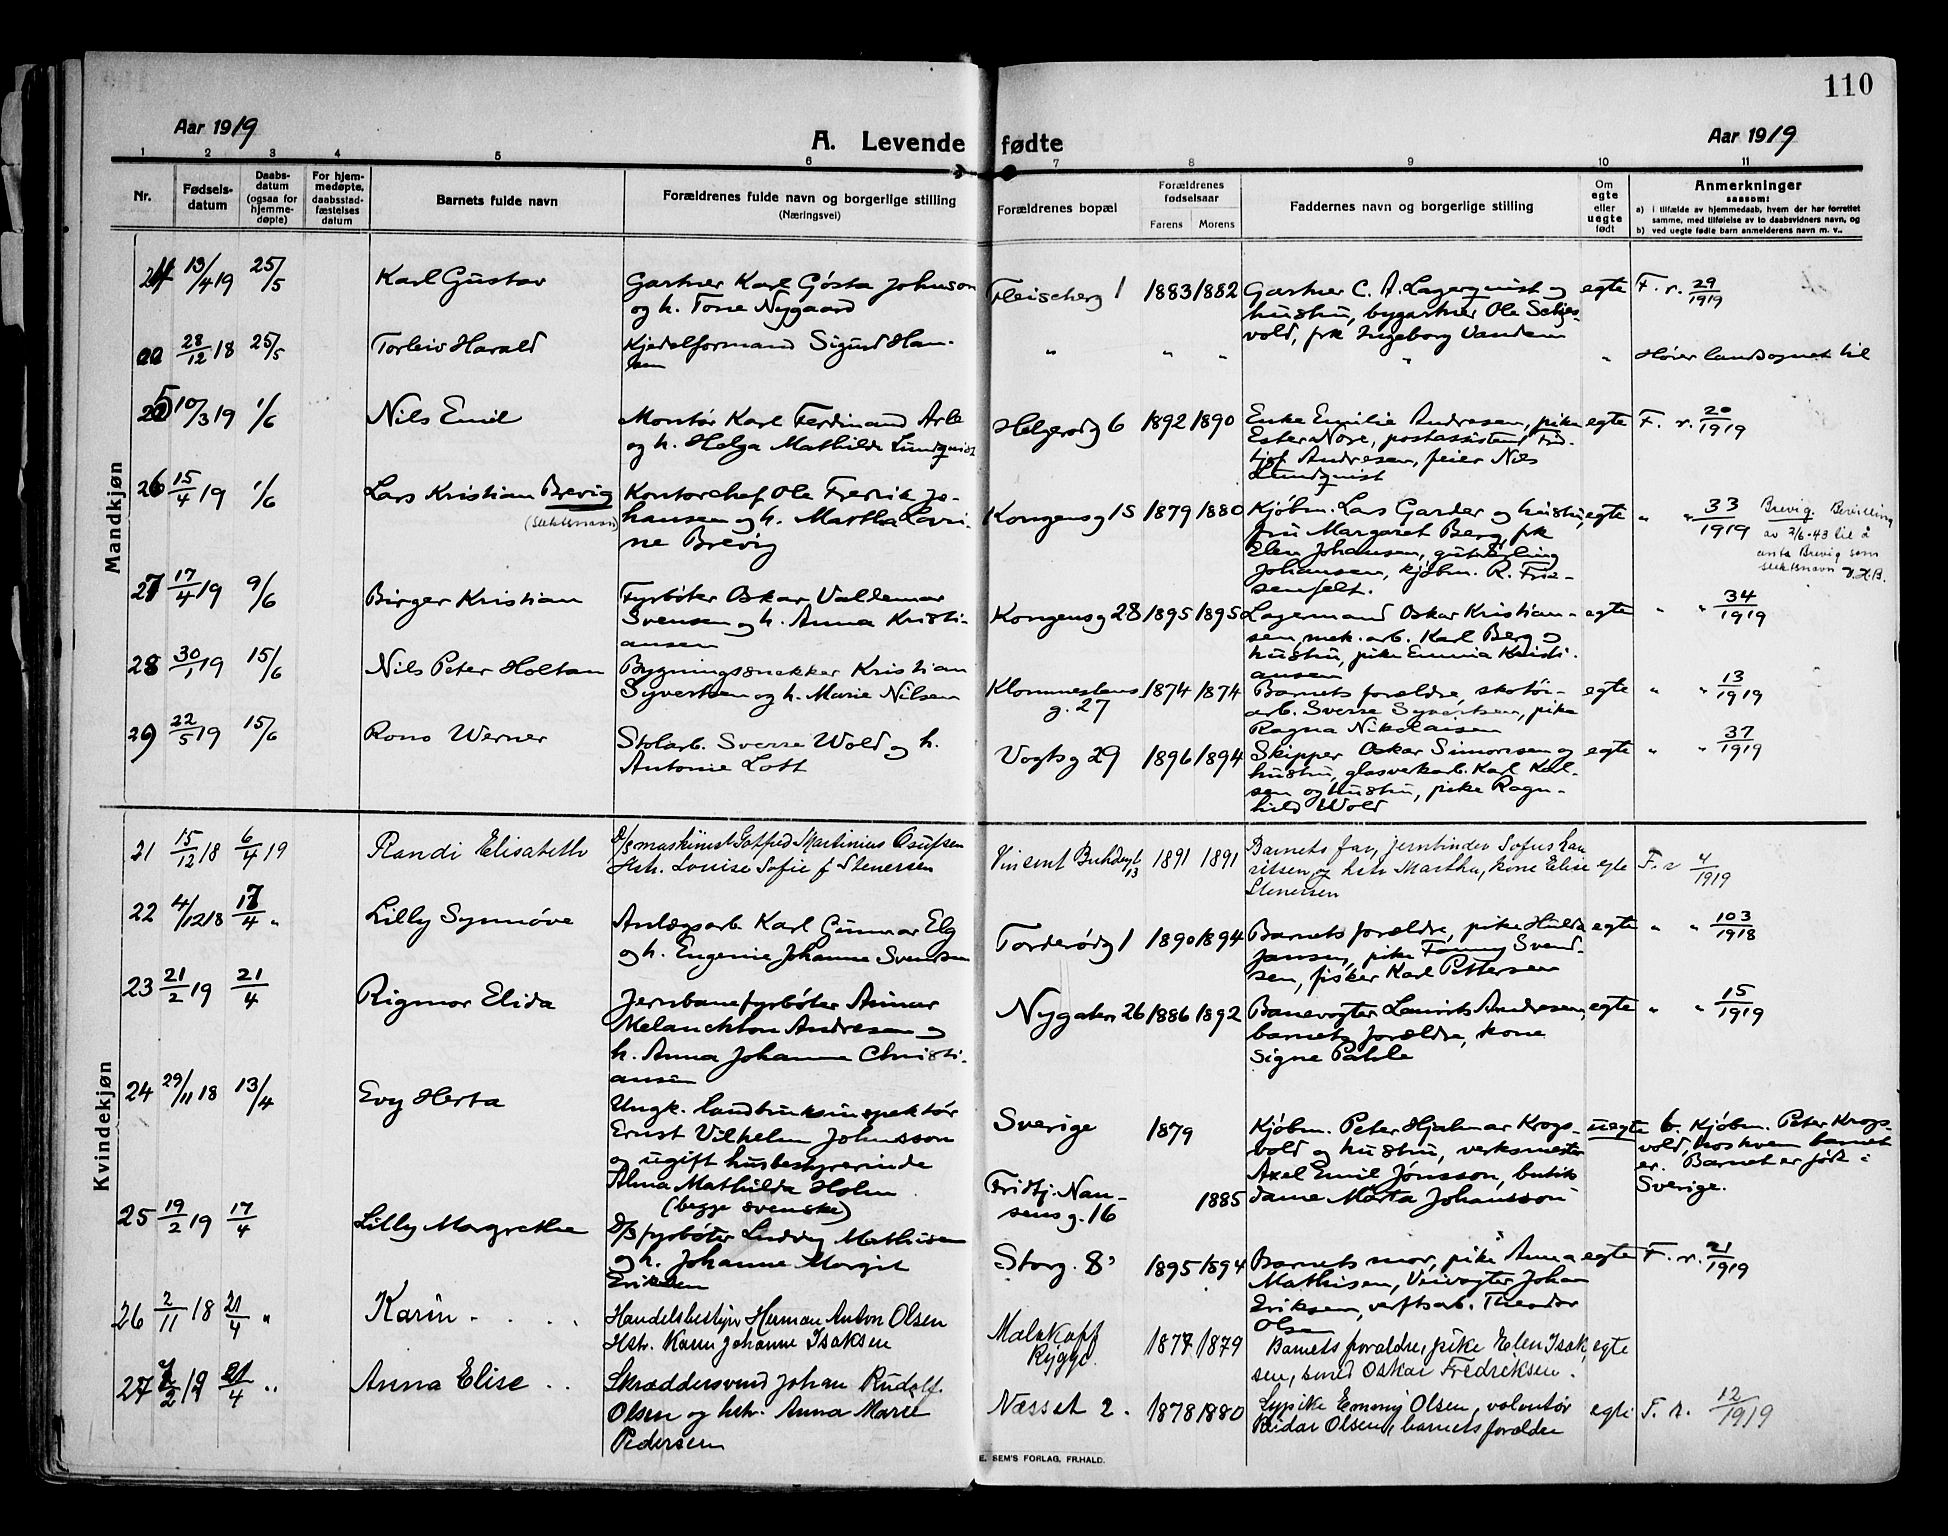 110
Aar 1919
A. Levende fødte
Aar 1919
1 2 3 4 5 6 7 8 9 10 11
Nr.
Fødsels-
datum
Daabs-
datum
(ogsaa for
hjemme-
døpte)
For hjem-
medøpte,
daabsstad-
fæstelses
datum
Barnets fulde navn
Forældrenes fulde navn og borgerlige stilling
(Næringsvei)
Forældrenes bopæl
Forældrenes
fødselsaar
Farens Morens
Faddernes navn og borgerlige stilling
Om
egte
eller
uegte
født
Anmerkninger
saasom:
a) i tilfælde av hjemmedaab, hvem der har forrettet
samme, med tilføielse av to daabsvidners navn, og
b) ved uegte fødte barn anmelderens navn m. v..
Mandkjøn
24 13/4 19 25/5 Karl Gustav
Gartner Karl Gösta Johnson
og h. Tone Nygaard
Fleischerg 1 1883 1882
Gartner C. A. Lagerquist og
hustru, bygartner Ole Schjes-
vold, frk Ingeborg Vandem
egte F. r. 29/1919
28/12 18 25/5 Torleiv Harald
Kjedelformand Sigurd Han-
sen
" " " " "
Hører landsognet til
25 10/3 19 1/6 Nils Emil
Montør Karl Ferdinand Arle
og h. Helga Mathilde Lundquist
Helgerødg 6 1892 1890
Enke Emilie Andresen, pike
Ester Nore, postassistent Frid-
tjof Andresen, feier Nils
Lundquist
egte F. r. 20/1919
26 15/4 19 1/6 Lars Kristian Brevig
(slektsnavn)
Kontorchef Ole Fredrik Jo-
hansen og h. Martha Lovi-
ne Brevig
Kongensg 15 1879 1880
Kjøbm. Lars Garder og hustru,
fru Margaret Berg, frk
Elen Johansen, gut Erling
Johansen, kjøbm. R. Frie-
senfelt.
egte " " 33/1919
Brevig. Bevilling
av 2/6-43 til å
anta Brevig som
slektsnavn
27 17/4 19 9/6 Birger Kristian
Fyrbøter Oskar Valdemar
Svensen og h. Anna Kristi-
ansen
Kongensg 28 1895 1895
Lagermand Oskar Kristian-
sen, mek. arb. Karl Berg og
hustru, pike Emma Kristi-
ansen
egte " " 34/1919
28 30/1 19 15/6 Nils Peter Holtan
Bygningssnekker Kristian
Syvertsen og h. Marie Nilsen
Klommestens
g. 27 1874 1874
Barnets forældre, skotøi-
arb. Sverre Syvertsen, pike
Ragna Nikolaisen
egte " " 13/1919
29 22/5 19 15/6 Rono Werner
Stolarb. Sverre Wold og h.
Antonie Lott
Vogtsg 29 1896 1894
Skipper Oskar Simonsen og
hustru, glasverkarb. Karl Karl-
sen og hustru, pike Ragn-
hild Wold
egte " " 37/1919
Kvindekjøn
21 15/12 18 6/4 19 Randi Elisabeth
D/S maskinist Gotfred Martinius Osufsen
Hstr. Louise Sofie f Stenersen
Vincent Buddesg 13 1891 1891
Barnets far, jernbinder Sofus Lau-
ritsen og hstr Martha, kone Elise
Stenersen
egte F. r 4/1919
22 4/12 18 17/4 " Lilly Synnøve
Anlægsarb. Karl Gunnar Elg
og h. Eugenie Johanne Svendsen
Torderødg 1 1890 1894
Barnets forældre, pike Hulda
Jansen, pike Fanny Svend-
sen, fisker Karl Pettersen
egte " " 103/1918
23 21/2 19 21/4 Rigmor Elida
Jernbanefyrbøter Aimar
Melanchton Andresen og
h. Anna Johanne Christi-
ansen
Nygaten 26 1886 1892
Banevogter Laurits Andresen,
barnets forældre, kone
Signe Pahle
egte " " 15/1919
24 29/11 18 13/4 Evy Herta
Ungk. landbruksinspektør
Ernst Vilhelm Johnsson
og ugift husbestyrerinde
Alma Mathilda Holm
(begge svenske)
Sverige 1879
Fridtj. Nan-
sens g. 16 1885
Kjøbm. Peter Hjalmar Krogs-
vold og hustru, verksmester
Axel Emil Jönsson, butik-
dame Märta Johansson
uegte b. Kjøbm. Peter Krogs-
vold, hos hvem barnet
er. Barnet er født i
Sverige.
25 19/2 19 17/4 Lilly Margrethe
D/S fyrbøter Ludvig Mathisen
og h. Johanne Margit
Eriksen
Storg. 8 1895 1894
Barnets mor, pike Anna
Mathisen, Veivogter Johan
Eriksen, verftsarb. Theodor
Olsen
egte F. r. 21/1919
26 2/11 18 21/4 " Karin
Handelsbestyrer Herman Anton Olsen
Hstr. Karen Johanne Isaksen
Malakoff
Rygge. 1877 1879
Barnets forældre, pike Elen Isak-
sen, Oskar Fredriksen.
egte
27 2/2 19 21/4 " Anna Elise
Skræddersvend Johan Rudolf
Olsen og hstr. Anna Marie
Pedersen
Næsset 2. 1878 1880
Sypike Emmy Olsen, volontør
Reidar Olsen, barnets forældre
egte F. r. 12/1919
E. SEM'S FORLAG, FR.HALD.